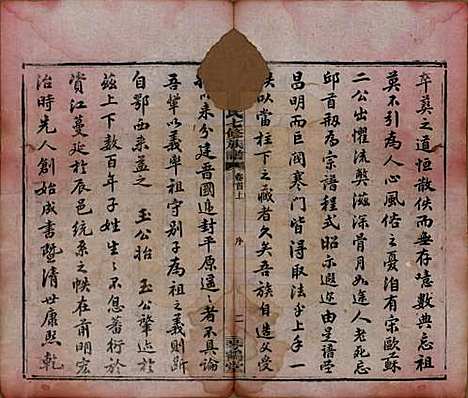 卒奠之道恒散佚而無存噫數典忘祖
莫不引為人心風俗之憂洎有宋歐蘇
二公出懼流獘滋深胥月如逢人老死忌
邱首剏為宗譜程式昭示遐邇由是譜學
昌明而巨閥寒門皆得取法乎上手一
帙以當柱下之藏者久矣吾族自造父受
以来分建晋國進封平原邈者不具論
吾輩以義率祖守别子為祖之義則斷
自鄂西来蓋之 玉公始 玉公肇迹於
茲上下數百年子姓生生不息蕃衍於
資江蔓延於辰邑統系之帙在前明宏
治時先人創始成書暨清世康熙乾
氏七修族譜
卷首上
序
二